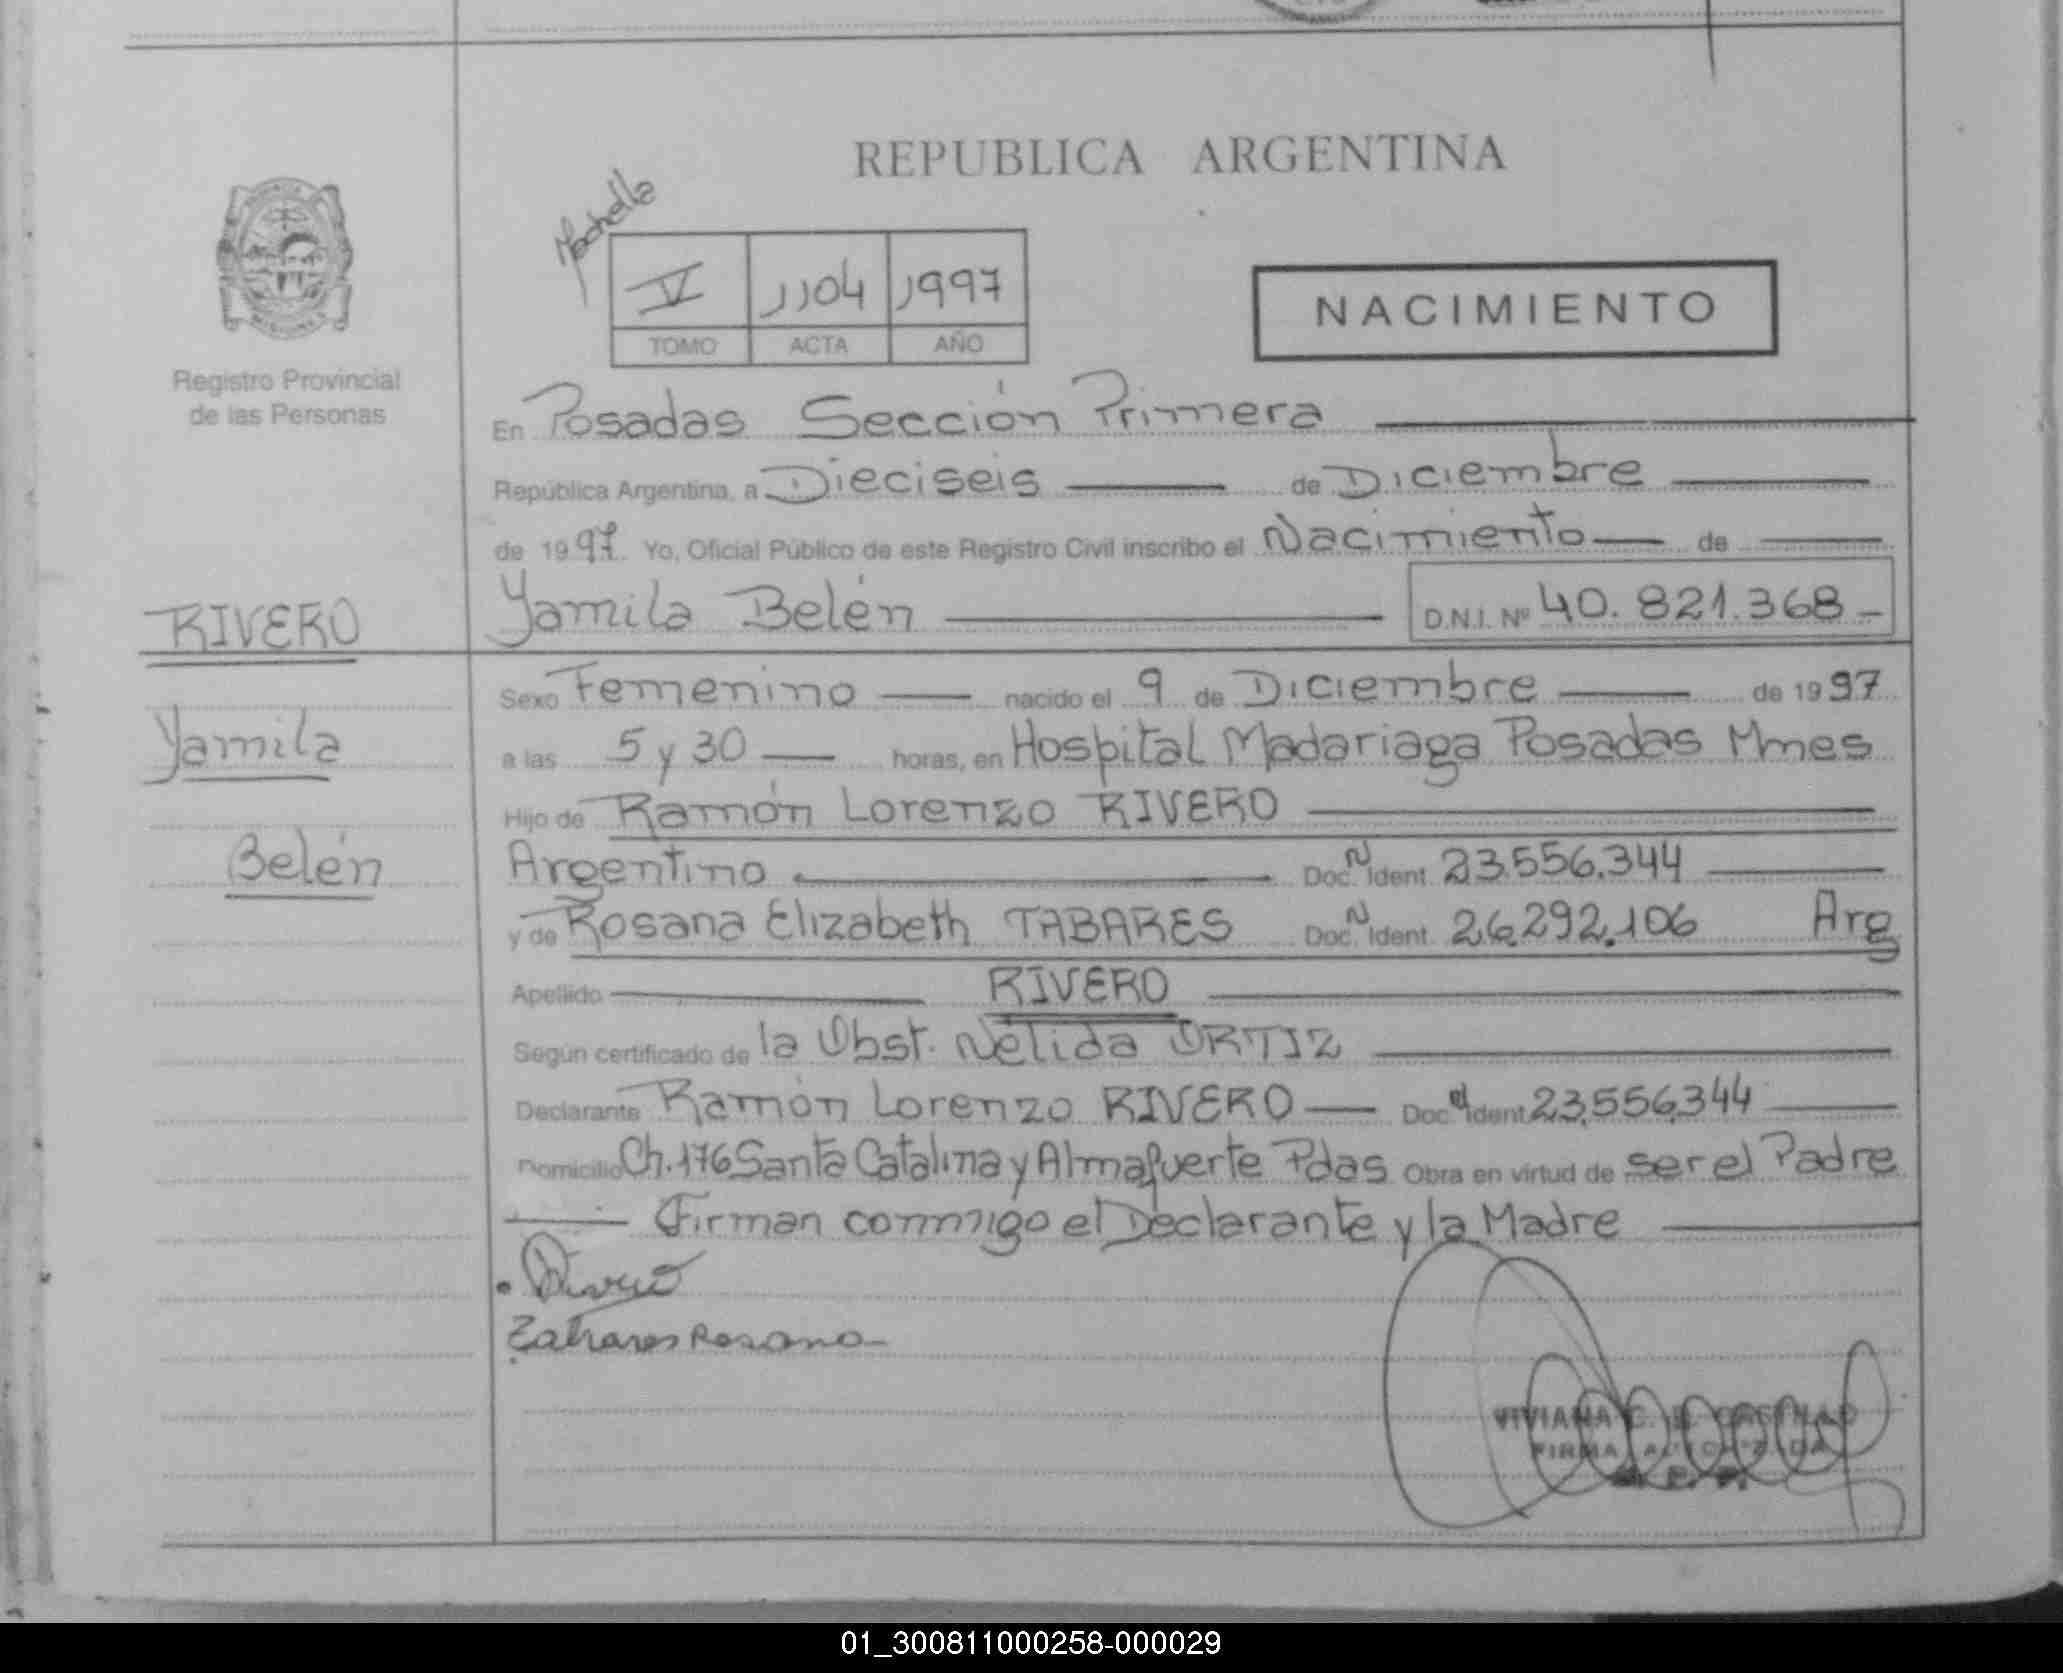 REPUBLICA ARGENTINA
V 1104 1997
TOMO ACTA AÑO
NACIMIENTO
MISIONES
Registro Provincial
de las Personas
En Posadas Sección Primera
República Argentina, a Dieciseis de Diciembre
de 1997 Yo, Oficial Público de este Registro Civil inscribo el Nacimiento de
Yamila Belén D.N.I. Nº 40.821.368
RIVERO
Yamila
Belén
Sexo Femenino nacido el 9 de Diciembre de 1997
a las 5 y 30 horas, en Hospital Madariaga Posadas Mnes
Hijo de Ramón Lorenzo RIVERO
Argentino Doc. N Ident. 23.556.344
y de Rosana Elizabeth TABARES Doc. N Ident. 26.292.106 Arg
Apellido RIVERO
Según certificado de la Obst. Nélida ORTIZ
Declarante Ramón Lorenzo RIVERO Doc. Ident. 23.556.344
Domicilio Ch. 176 Santa Catalina y Almafuerte Pdas Obra en virtud de ser el Padre
Firman conmigo el Declarante y la Madre
Tabares Rosana
VIVIANA
FIRMA AUTORIZADA
01_300811000258-000029